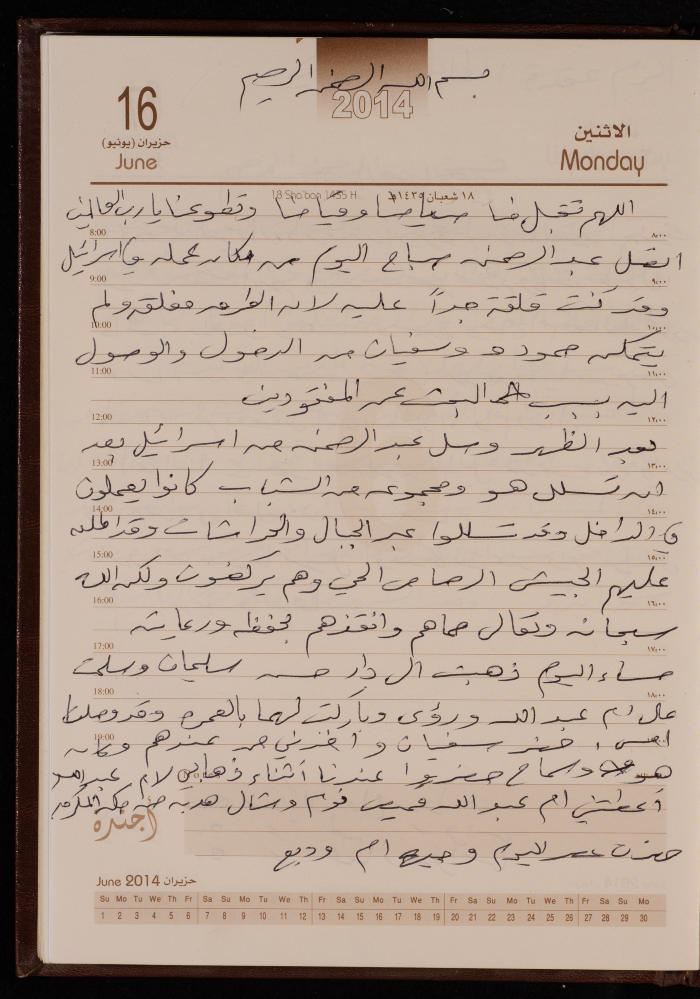 بسم الله الرحمن الرحيم
2014
16
حزيران (يونيو)
June
الاثنين
Monday
18 Sha'ban 1435 H
١٨ شعبان ١٤٣٥هـ
اللهم تقبل منا صيامنا وقيامنا وتطوعنا يا رب العالمين
8:00 ٨:٠٠
اتصل عبد الرحمن صباح اليوم من مكان عمله في اسرائيل
9:00 ٩:٠٠
وقد كنت قلقة جداً عليه لان الطرق مغلقة ولم
10:00 ١٠:٠٠
يتمكن حمودة وسفيان من الدخول والوصول
11:00 ١١:٠٠
اليه بسبب البحث عن المفقودين
12:00 ١٢:٠٠
بعد الظهر وصل عبد الرحمن من اسرائيل بعد
13:00 ١٣:٠٠
ان تسلل هو ومجموعه من الشباب كانوا يعملون
14:00 ١٤:٠٠
في الداخل وقد تسللوا عبر الجبال والحراشات وقد اطلق
15:00 ١٥:٠٠
عليهم الجيش الرصاص الحي وهم يركضون ولكن الله
16:00 ١٦:٠٠
سبحانه وتعالى حماهم وانقذهم بحفظه ورعايته
17:00 ١٧:٠٠
مساء اليوم ذهبت الى دار حسن سليمان وسلمت
18:00 ١٨:٠٠
على ام عبد الله ورؤى وباركت لهما بالعمره وقد وصلتا
19:00
امس، حضر سفيان وأخذني من عندهم وكان
هو وسماح حضروا عندنا أثناء ذهابي لام عبد الله
أعطتني ام عبد الله قميص نوم وشال هدية من مكة المكرمة
أجندة
حزيران June 2014
Su Mo Tu We Th Fr Sa Su Mo Tu We Th Fr Sa Su Mo Tu We Th Fr Sa Su Mo Tu We Th Fr Sa Su Mo
1 2 3 4 5 6 7 8 9 10 11 12 13 14 15 16 17 18 19 20 21 22 23 24 25 26 27 28 29 30